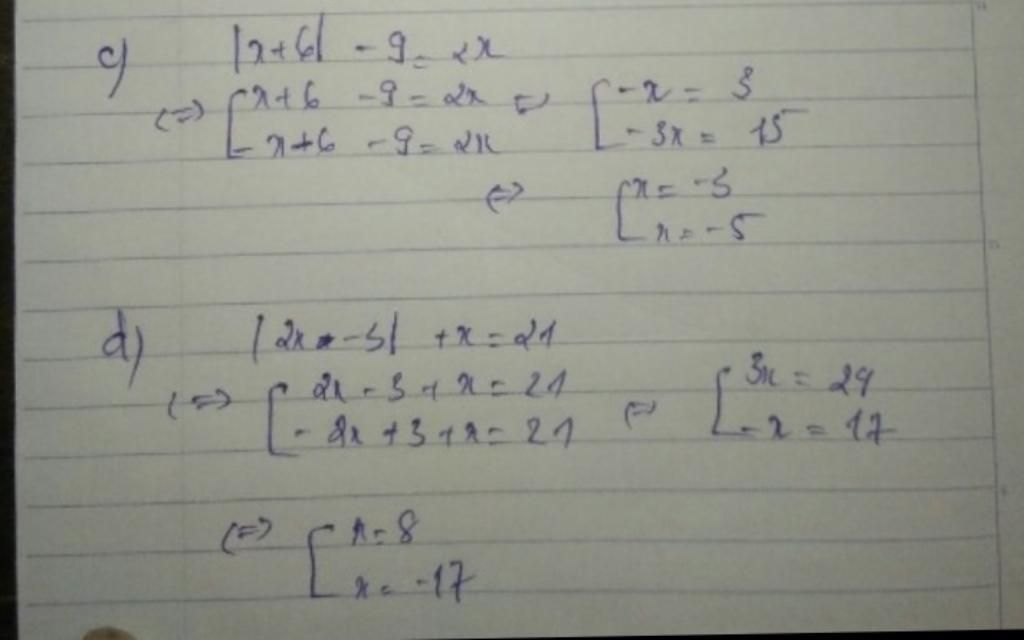 c) |x+6| - 9 = 2x
<=> [ x+6 - 9 = 2x <=> [ -x = 3
- x+6 - 9 = 2x - 3x = 15
<=> [ x = -3
x = -5
d) |2x - 3| + x = 21
<=> [ 2x - 3 + x = 21 <=> [ 3x = 24
- 2x + 3 + x = 21 - x = 17
<=> [ x = 8
x = -17